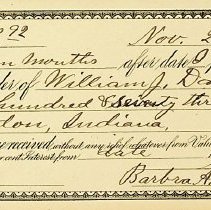 92 Nov. 2
n months after date
er of William J. D
hundred & seventy thr
don, Indiana,
received without any relief whatever from Valu
Interest from date
Barbra A